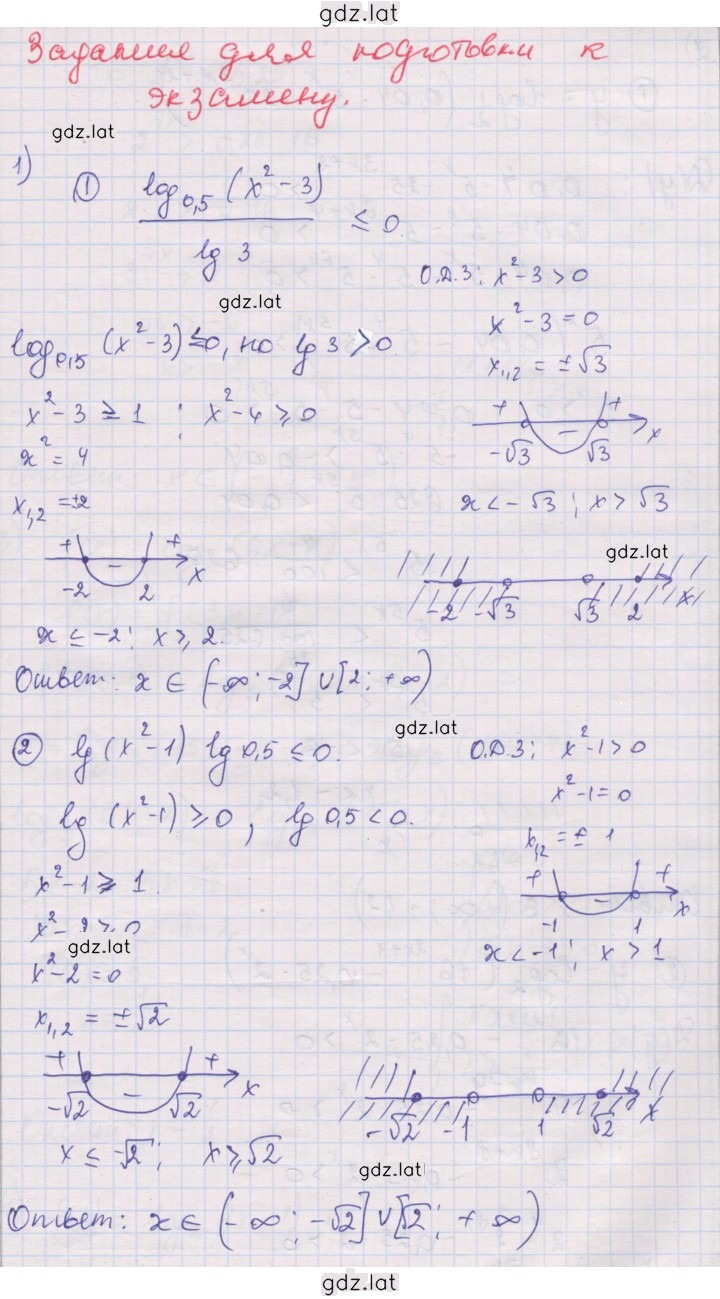 gdz.lat
Задания для подготовки к
экзамену.
gdz.lat
1)
① log₀,₅ (x² - 3)
lg 3
≤ 0.
О.Д.З: x² - 3 > 0
gdz.lat
x² - 3 = 0
log₀,₅ (x² - 3) ≤ 0, но lg 3 > 0
x₁,₂ = ± √3
x² - 3 ≥ 1 ; x² - 4 ≥ 0
+ - + x
-√3 √3
x² = 4
x₁,₂ = ±2
x < - √3 ; x > √3
+ - + x
-2 2
gdz.lat
-2 -√3 √3 2 x
x ≤ -2; x ≥ 2.
Ответ: x ∈ (-∞; -2] ∪ [2; +∞)
gdz.lat
② lg (x² - 1) lg 0,5 ≤ 0.
О.Д.З: x² - 1 > 0
x² - 1 = 0
lg (x² - 1) ≥ 0, lg 0,5 < 0.
x₁,₂ = ± 1
x² - 1 ≥ 1.
+ - + x
-1 1
x² - 2 ≥ 0
gdz.lat
x < -1; x > 1
x² - 2 = 0
x₁,₂ = ± √2
+ - + x
-√2 √2
-√2 -1 1 √2 x
x ≤ -√2; x ≥ √2
gdz.lat
Ответ: x ∈ (-∞; -√2] ∪ [√2; +∞)
gdz.lat